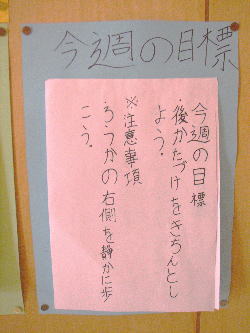 今週の目標
今週の目標
・後かたづけをきちんとし
よう。
※注意事項
・ろうかの右側を静かに歩
こう。